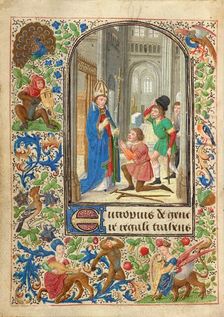 Eutropius de gene
re regali trahens